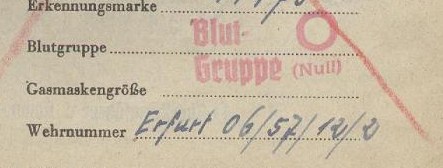 Erkennungsmarke
Blutgruppe Blut-Gruppe O (Null)
Gasmaskengröße
Wehrnummer Erfurt 06/57/12/2